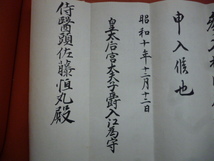 申入候也
昭和十年十二月十二日
皇太后宮大夫子爵入江為守
侍医頭佐藤恒丸殿